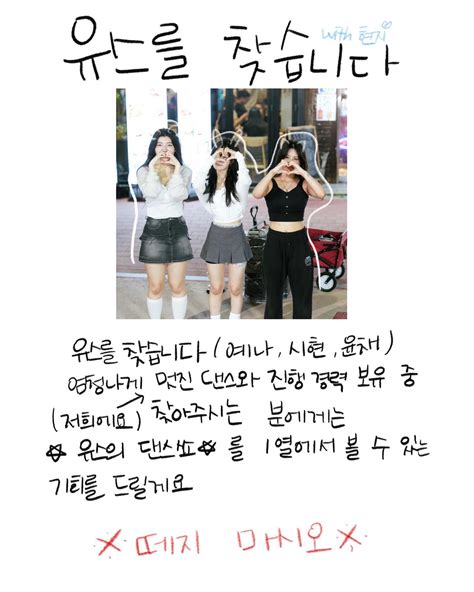 유스를 찾습니다
with 현지
유스를 찾습니다 (예나, 시현, 윤채)
엄청나게 멋진 댄스와 진행 경력 보유 중
(저희에요) 찾아주시는 분에게는
유스의 댄스쇼 를 1열에서 볼 수 있는
기회를 드릴게요
떼지 마시오